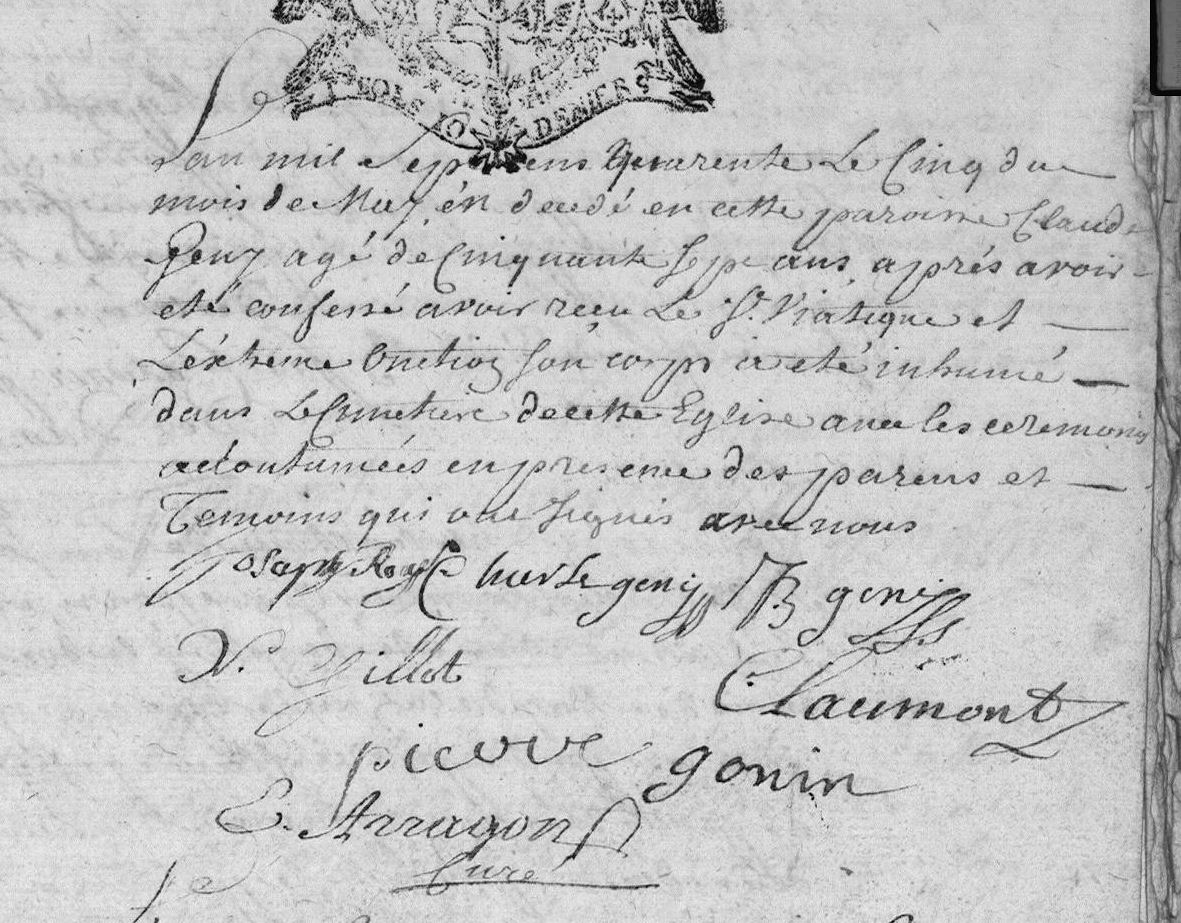 I SOLS 10 DENIERS
Le
Lan mil Sept cens Quarente Le Cinq du
mois de May én decedé en cette paroisse Claude
Geny agé de Cinquante Sept ans apres avoir
eté confessé avoir reçu Le St. Viatique et
L'extreme Onction son corps a eté inhumé
dans Le Cimetiere de cette Eglise avec les ceremonies
acoutumées en presence des parens et
Temoins qui ont signés avec nous
Joseph Charle geny JB geny
N. Gillot
C. Laumont
pierre gonin
E. Arragon
Curé
Le